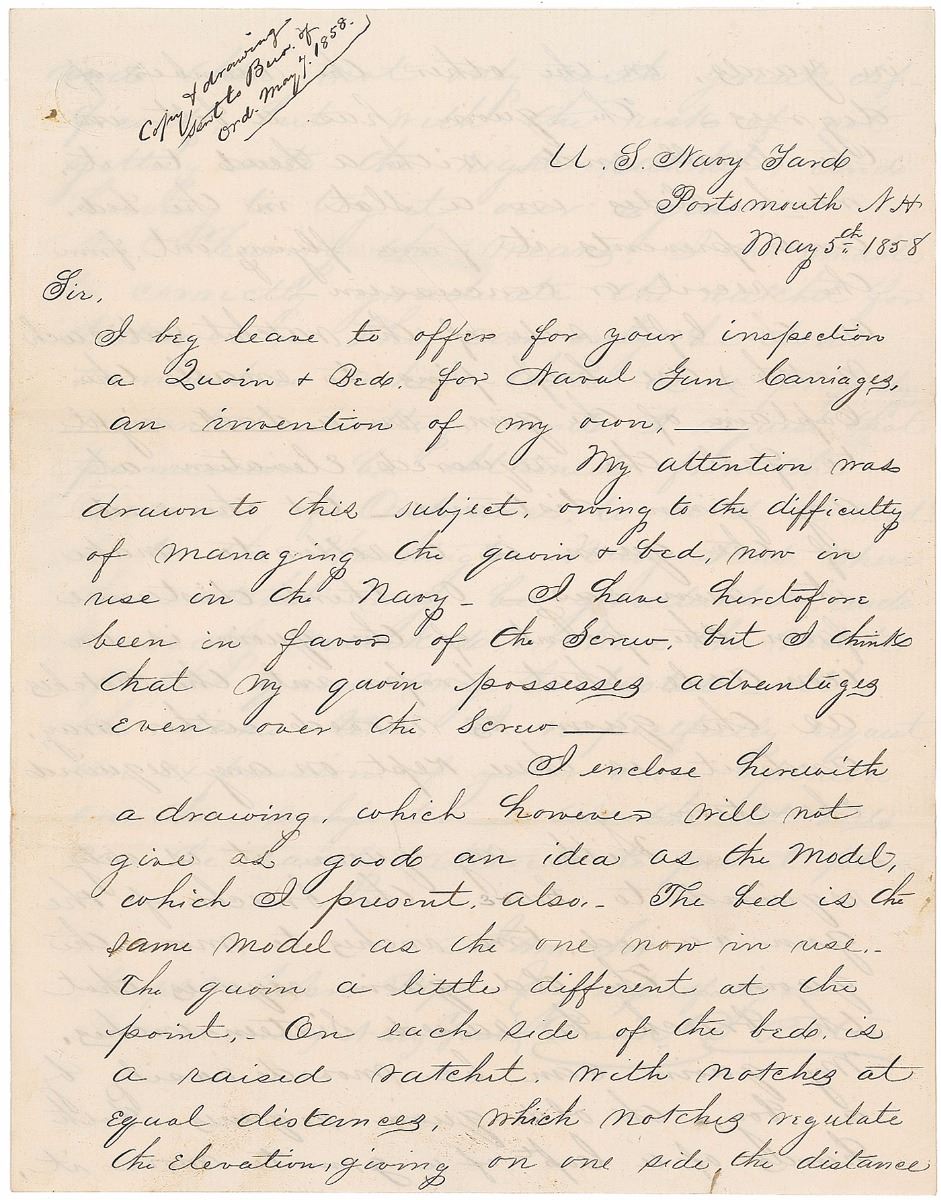 Copy & drawing
sent to Beur. of
Ord. May 7. 1858.
U. S. Navy Yard
Portsmouth N H
May 5th 1858
Sir,
I beg leave to offer for your inspection
a Quoin & Bed. for Naval Gun Carriages,
an invention of my own. —
My attention was
drawn to this subject, owing to the difficulty
of managing the quoin & bed, now in
use in the Navy - I have heretofore
been in favor of the Screw, but I think
that my quoin possesses advantages
even over the Screw —
I enclose herewith
a drawing, which however will not
give as good an idea as the Model,
which I present, also. - The bed is the
same model as the one now in use. -
The quoin a little different at the
point. - On each side of the bed is
a raised ratchet. with notches at
equal distances, which notches regulate
the Elevation, giving on one side the distance